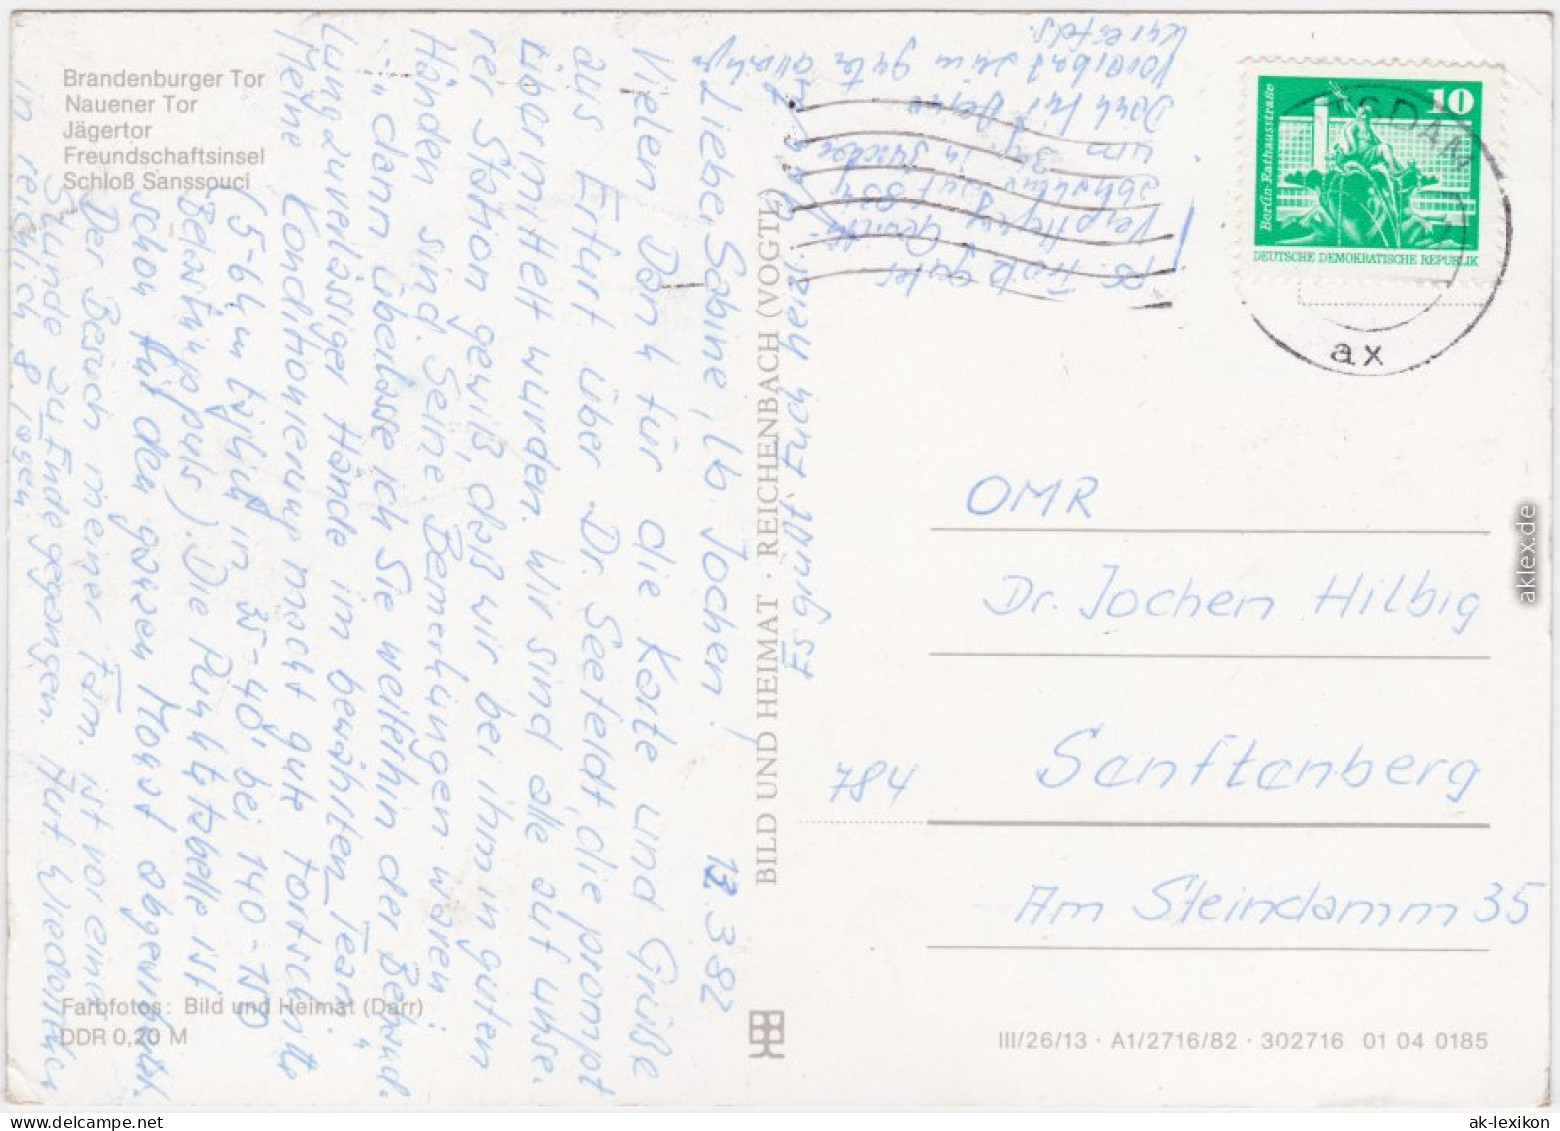 Brandenburger Tor
Nauener Tor
Jägertor
Freundschaftsinsel
Schloß Sanssouci
Liebe Sabine, lb. Jochen! 13.3.82
Vielen Dank für die Karte und Grüße
aus Erfurt über Dr. Seefeldt, die prompt
übermittelt wurden. Wir sind alle auf unse-
rer Station gewiß, daß wir bei ihm in guten
Händen sind. Seine Bemerkungen waren:
"dann überlasse ich Sie weiterhin der Behand-
lung zuverlässiger Hände im bewährten Team"
Meine Konditionierung macht gute Fortschritte
(5-6 km täglich in 35-40' bei 140-150
Belastungspuls). Die Punktzabelle ist
schon für den ganzen Monat abgerundet.
Der Besuch meiner Fam. ist vor einer
Stunde zu Ende gegangen. Auf Wiedersehen
in reichlich 8 Tagen
Euer Hansg
PS. Trotz guter
Verpflegung
um 3 kg in
Dank für Deine
Vorarbeit
BILD UND HEIMAT · REICHENBACH (VOGTL)
10
Berlin-Rathausstraße
DEUTSCHE DEMOKRATISCHE REPUBLIK
SDAM
ax
OMR
Dr. Jochen Hilbig
784 Senftenberg
Am Steindamm 35
Farbfotos: Bild und Heimat (Darr)
DDR 0,20 M
III/26/13 · A1/2716/82 · 302716 01 04 0185
aklex.de
ak-lexikon